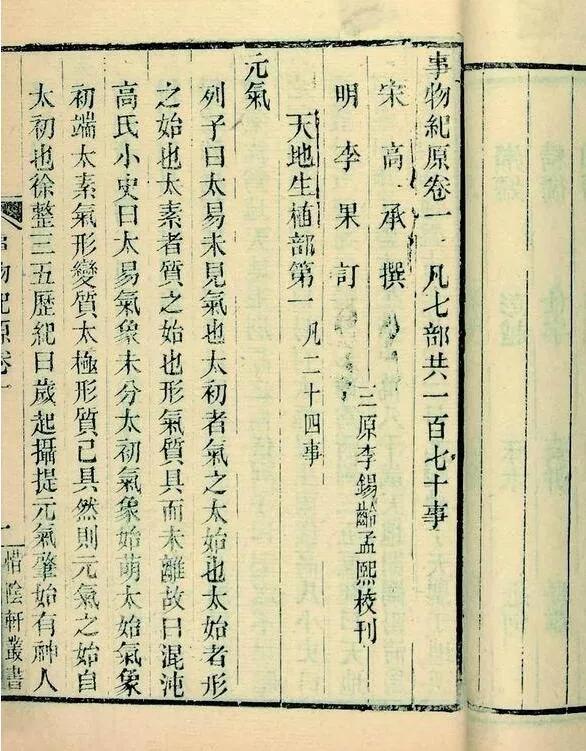 事物紀原卷一　凡七部共一百七十事
宋高承撰
明李果訂
三原李錫齡孟熙校刊
天地生植部第一　凡二十四事
元氣
列子曰太易未見氣也太初者氣之太始也太始者形
之始也太素者質之始也形氣質具而未離故曰混沌
高氏小史曰太易氣象未分太初氣象始萌太始氣象
初端太素氣形變質太極形質已具然則元氣之始自
太初也徐整三五歷紀曰歲起攝提元氣肇始有神人
事物紀原卷一
一
惜陰軒叢書